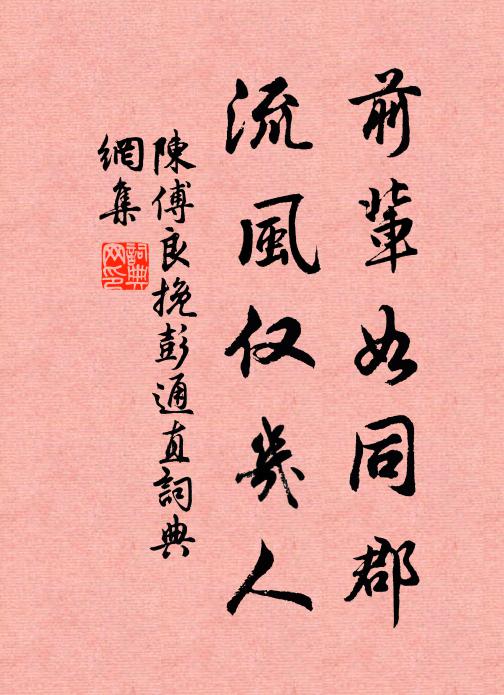 前輩如同郡
流風仅幾人
陳傅良挽彭通直詞典
網集
詞典网印